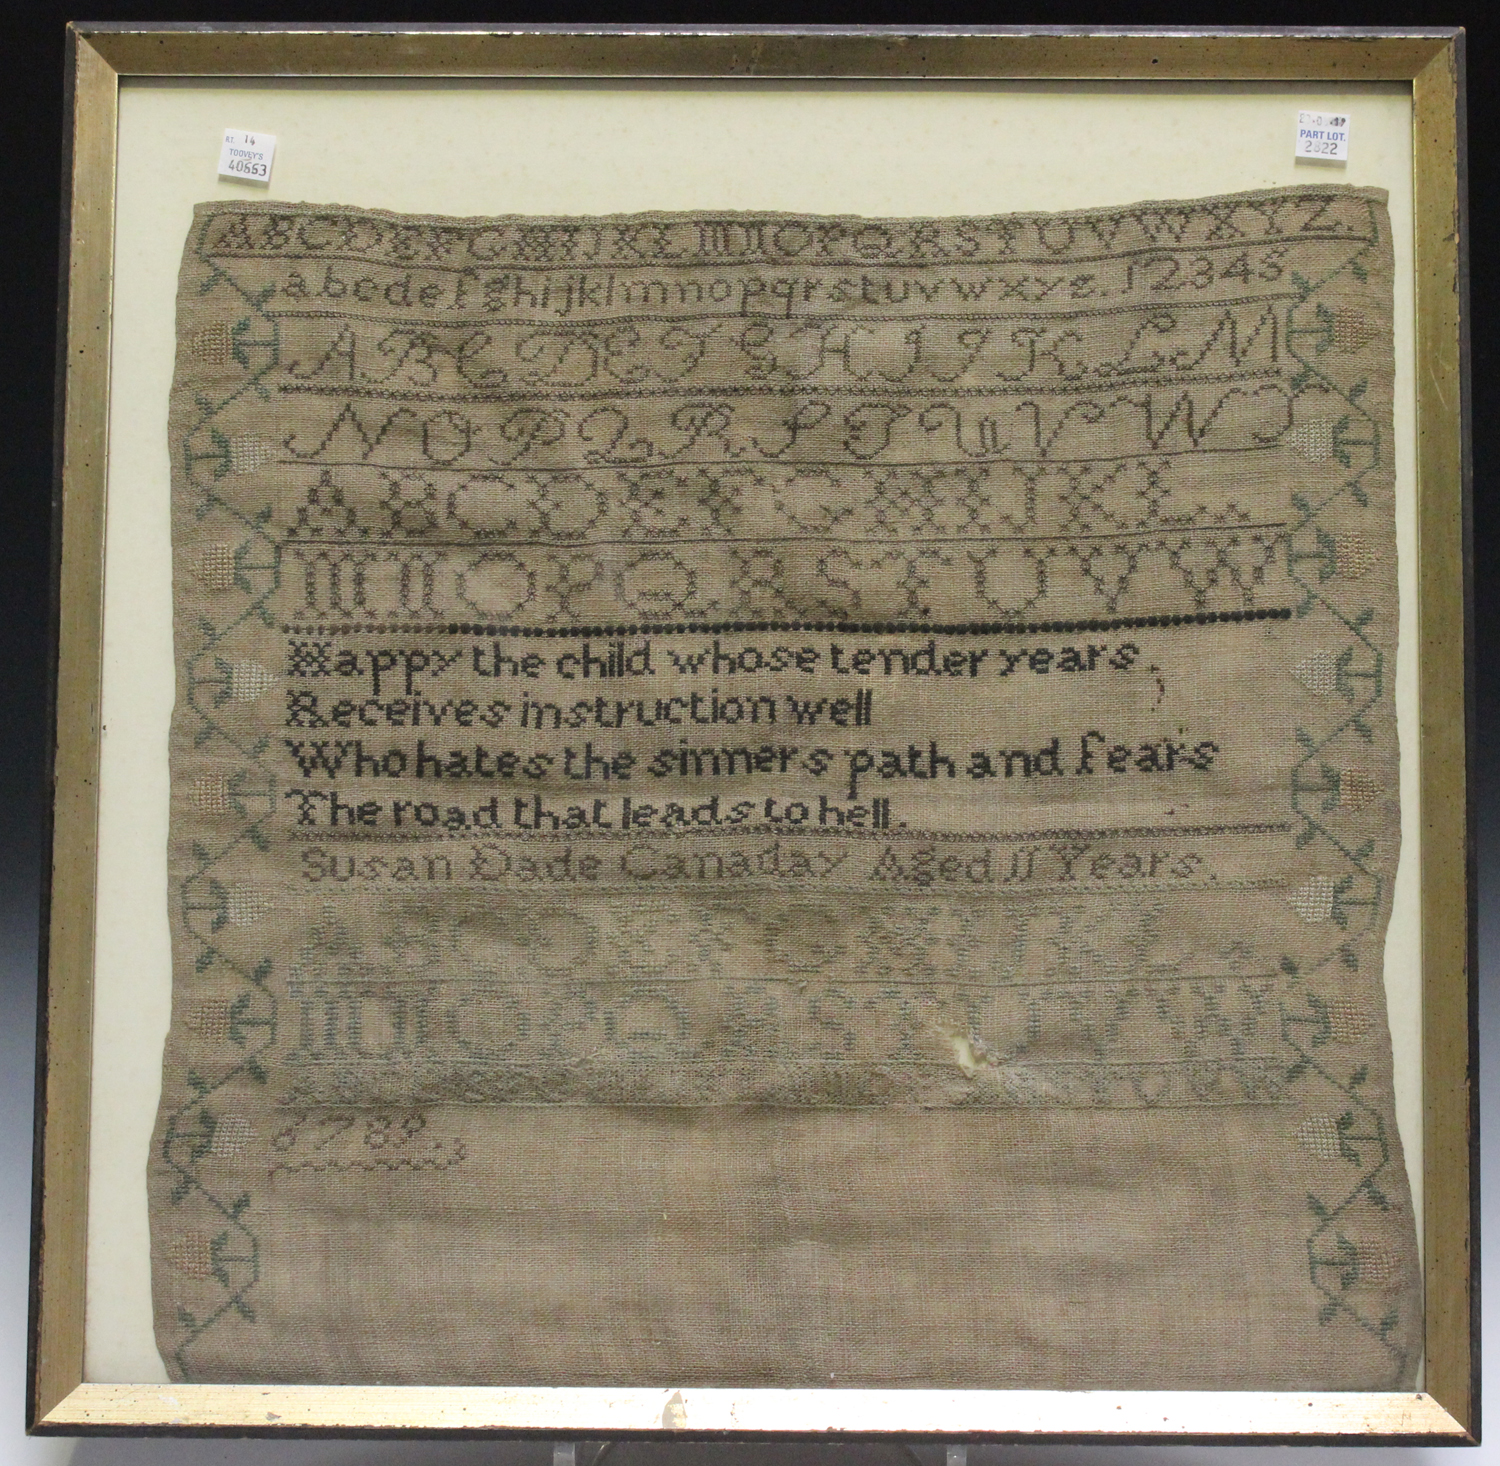 R.T. 14
TOOVEY'S
40653
PART LOT.
2822
ABCDEFGHIJKLMNOPQRSTUVWXYZ.
abcdefghijklmnopqrstuvwxyz. 12345
ABCDEFGHIJKLM
NOPQRSTUVW
ABCDEFGHIJKL
MNOPQRSTUVW
Happy the child whose tender years
Receives instruction well
Who hates the sinners path and fears
The road that leads to hell.
Susan Dade Canaday Aged 11 Years.
ABCDEFGHIJKL
MNOPQRSTUVW
6789